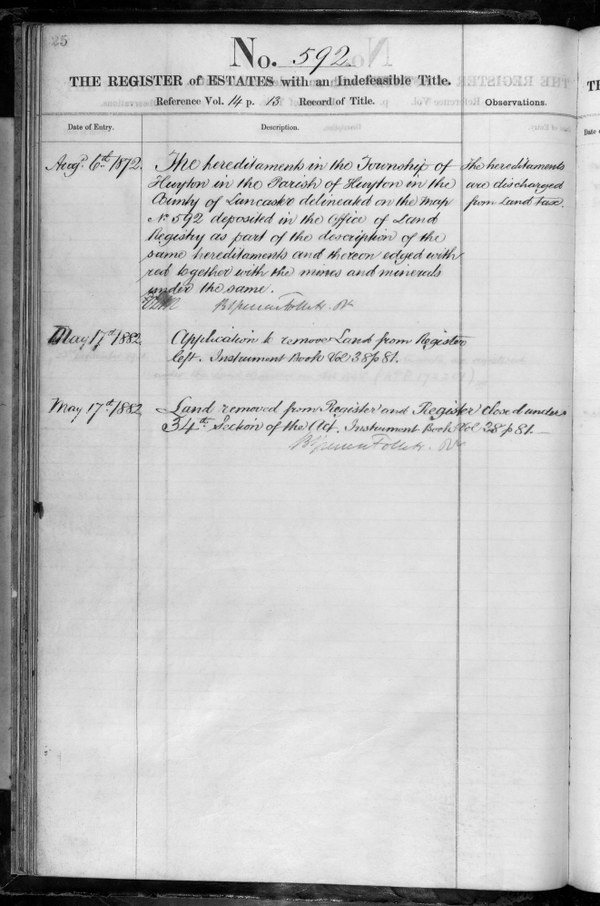 25
No. 592
THE REGISTER of ESTATES with an Indefeasible Title.
Reference Vol. 14 p. 13. Record of Title.
Observations.
Date of Entry.
Description.
Augt. 6th 1872.
The hereditaments in the Township of
Huyton in the Parish of Huyton in the
County of Lancaster delineated on the Map
No 592 deposited in the Office of Land
Registry as part of the description of the
same hereditaments and thereon edged with
red together with the mines and minerals
under the same.
The hereditaments
are discharged
from Land Tax.
May 17th 1882
Application to remove Land from Register
left. Instrument Book Vol 38 p 81.
May 17th 1882
Land removed from Register and Register closed under
34th Section of the Act. Instrument Book Vol 38 p 81.